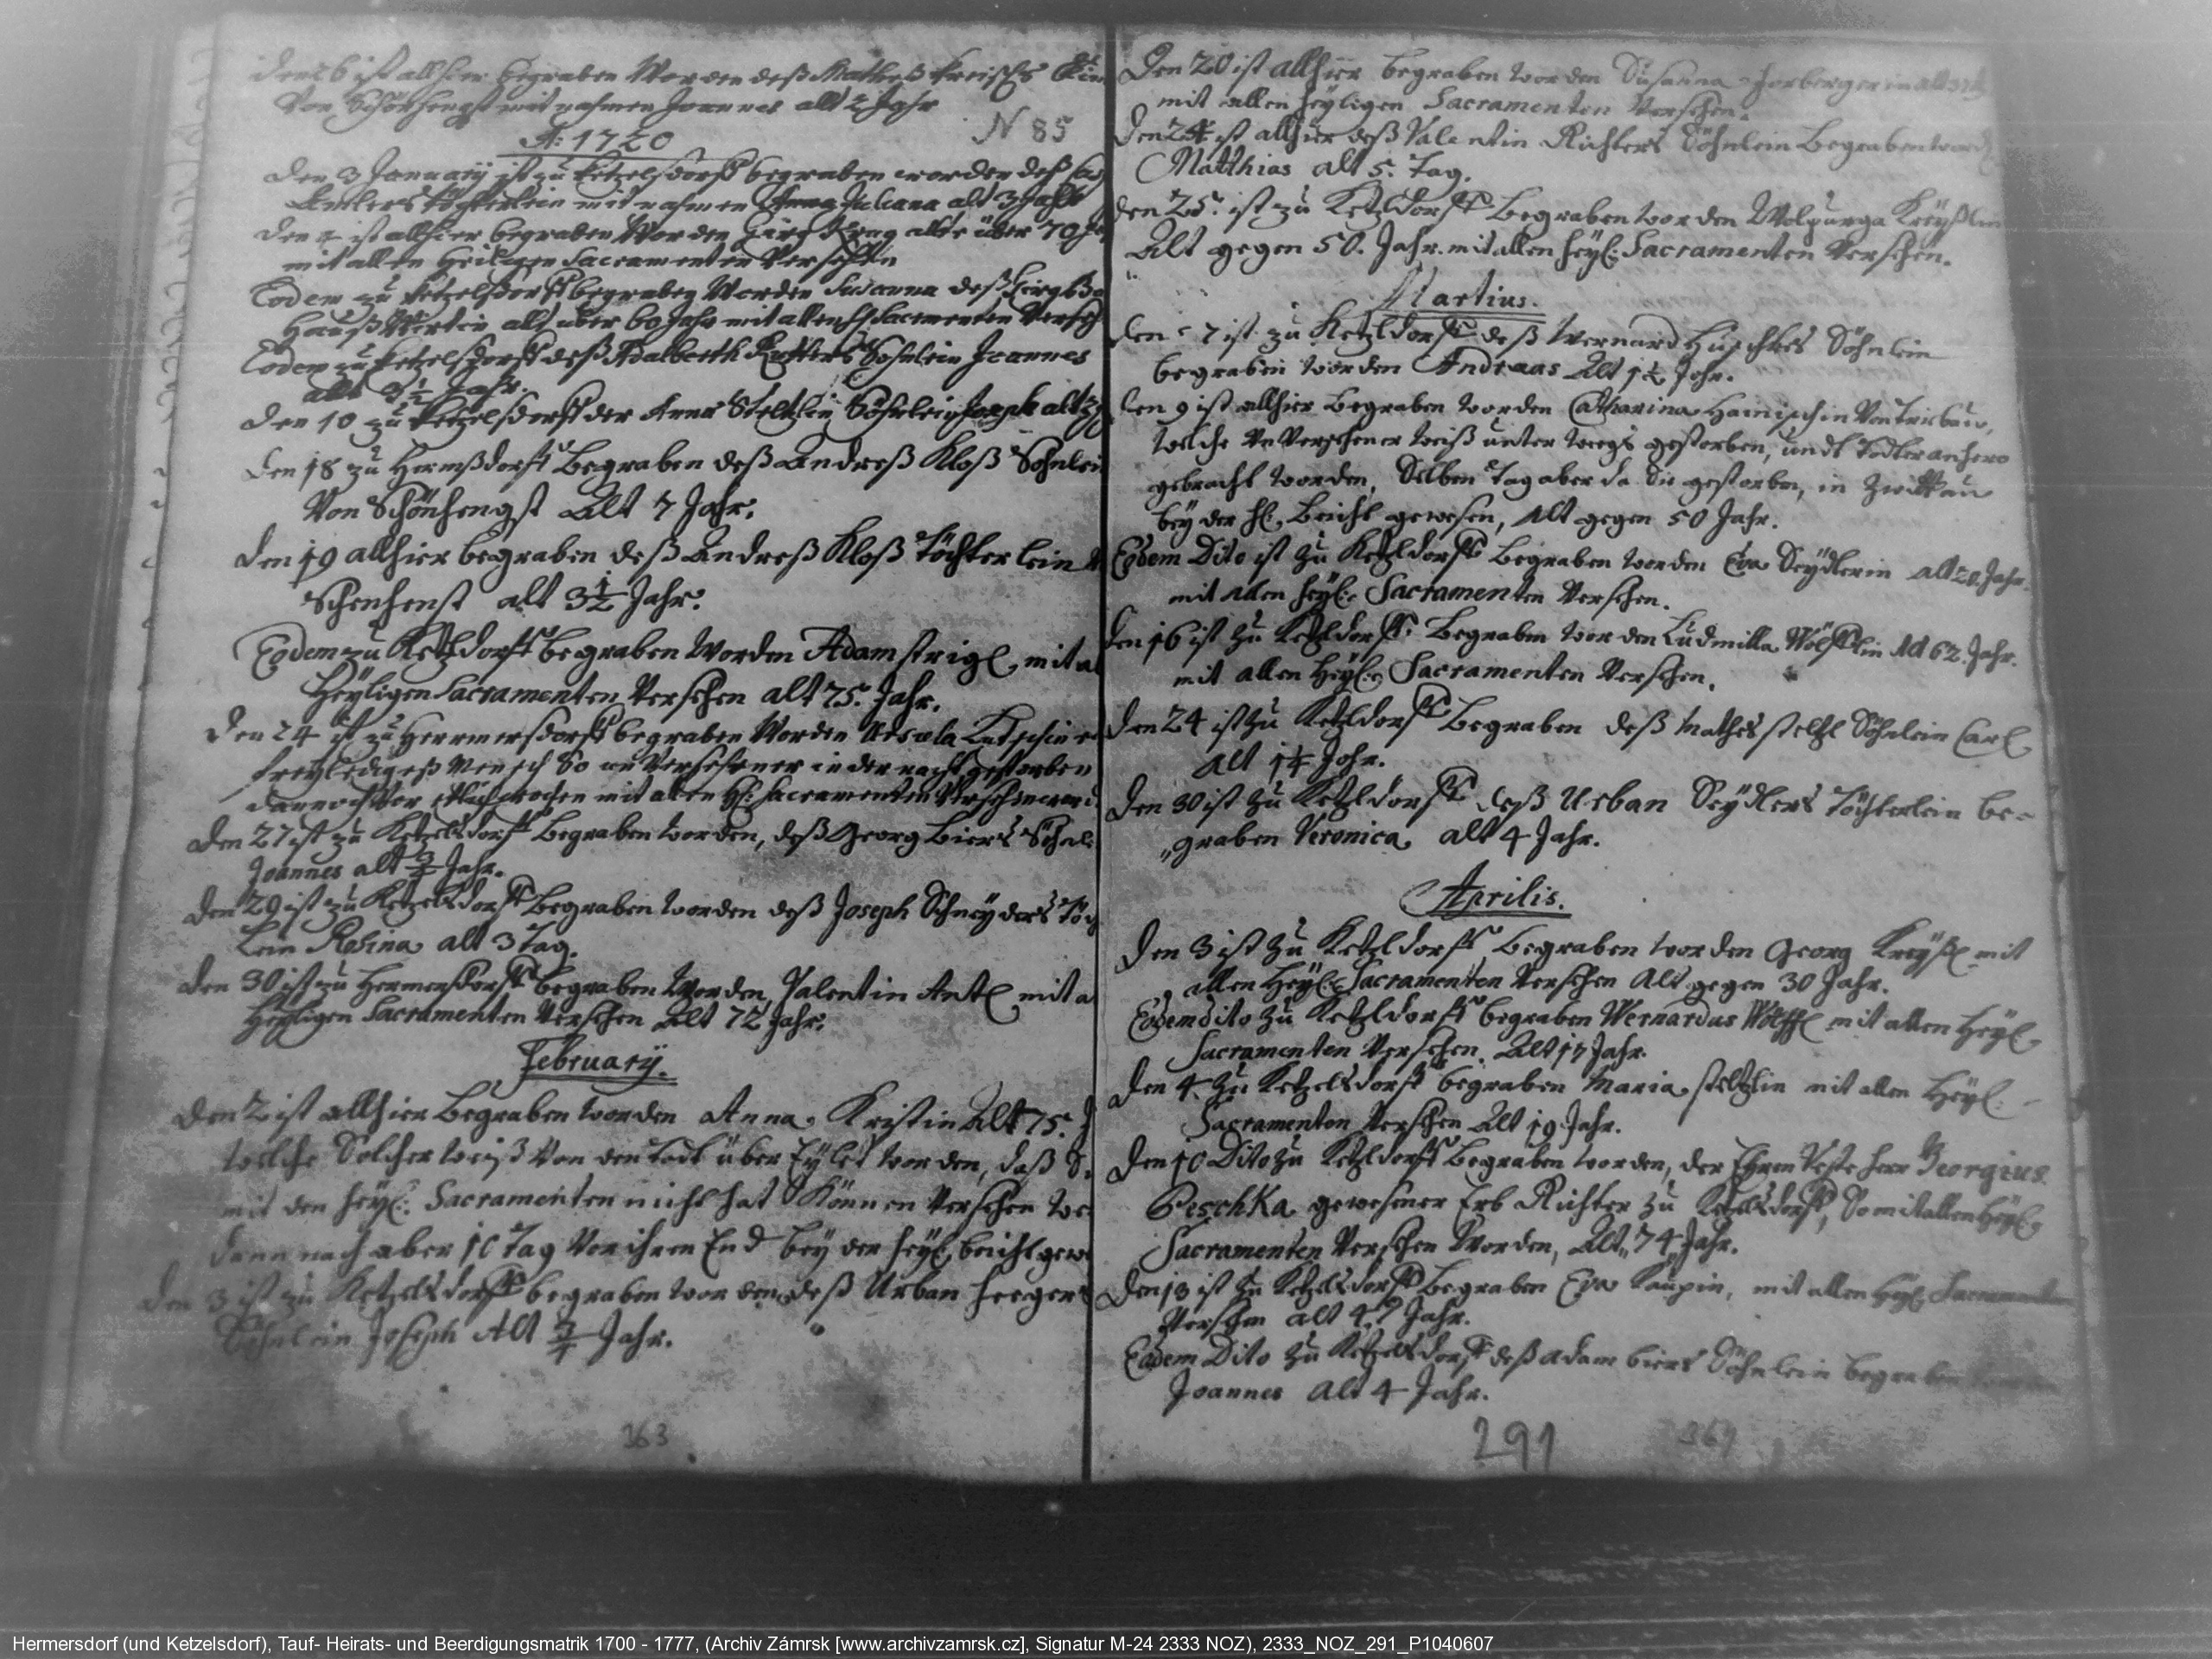 Den 26 ist allhier begraben Worden deß Matheß
Von Schönhengst mit nahmen Joannes alt 2 Jahr
N 85
A: 1720
Den 3 January ist zu Ketzelsdorff begraben worden deß
Töchterlein mit nahmen Anna Juliana alt 3 Jahr
Den 4 ist allhier begraben Worden alt über 70
mit allen Heiligen Sacramenten Versehen
Eodem zu Ketzelsdorff begraben Worden Susanna deß
Haußwirtin alt über 60 Jahr mit allen Sacramenten
Eodem zu Ketzelsdorff deß Adalberth Söhnlein Joannes
alt 3½ Jahr.
Den 10 zu Ketzelsdorff der Anna Steltzlin Söhnlein Joseph alt
Den 18 zu Hermßdorff Begraben deß Andreß Kloß Söhnlein
Von Schönhengst Alt 7 Jahr.
Den 19 allhier begraben deß Andreß Kloß Töchterlein
Schenhenst alt 3½ Jahr.
Eodem zu Ketzldorff begraben Worden Adam strigl, mit
Heyligen Sacramenten Versehen alt 75. Jahr.
Den 24 ist zu Hermersdorff begraben Worden
freyledigeß Mensch So in der nacht gestorben
mit allen Hl: Sacramenten
Den 27 ist zu Ketzelsdorff Begraben worden, deß Georg Biers
Joannes alt ¾ Jahr.
Den 29 ist zu Ketzelsdorff Begraben worden deß Joseph Schneyders
lein Rosina alt 3 Tag.
Den 30 ist zu Hermersdorff begraben Worden, Valentin Antl mit
Heyligen Sacramenten Versehen Alt 72 Jahr.
February.
Den 2 ist allhier Begraben worden Anna Kristin Alt 75.
welche Solcher weiß Von den Todt über Eylet worden, daß
mit den Heyl: Sacramenten nicht hat Können Versehen
dann nach aber 10 Tag Vor ihren End bey der heyl: beicht
Den 3 ist zu Ketzelsdorff begraben worden deß Urban Heegers
Söhnlein Joseph Alt ¾ Jahr.
363
Den 20 ist allhier begraben worden Susanna
mit allen heyligen Sacramenten Versehen.
Den 24 ist allhier deß Valentin Richters Söhnlein Begraben
Matthias alt 5. Tag.
Den 25. ist zu Ketzldorff Begraben worden Walpurga
Alt gegen 50. Jahr. mit allen heyl: Sacramenten Versehen.
Martius.
Den 7 ist zu Ketzldorff deß Wernard Söhnlein
begraben worden Andreas Alt 1¼ Jahr.
Den 9 ist allhier begraben worden Catharina Hainischin Von
welche Un Versehener weiß unter weegs gestorben, undt anhero
gebracht worden, Selben Tag aber da Sie gestorben, in Zwittau
bey der hl: Beicht gewesen, Alt gegen 50 Jahr.
Eodem Dito ist zu Ketzldorff Begraben worden Eva Seydlerin alt 20. Jahr.
mit allen heyl: Sacramenten Versehen.
Den 16 ist zu Ketzldorff Begraben worden Ludmilla Wölfflin Alt 62. Jahr.
mit allen Heyl: Sacramenten Versehen.
Den 24 ist zu Ketzldorff Begraben deß Mathes steltzl Söhnlein Carl
alt 1¼ Jahr.
Den 30 ist zu Ketzldorff deß Urban Seydlers Töchterlein be-
graben Veronica alt 4 Jahr.
Aprilis.
Den 3 ist zu Ketzldorff Begraben worden Georg Kreyßl mit
allen Heyl: Sacramenten Versehen Alt gegen 30 Jahr.
Eodem dito zu Ketzldorff begraben Wernardus Wölffl mit allen Heyl:
Sacramenten Versehen. Alt 17 Jahr.
Den 4 zu Ketzelsdorff begraben Maria steltzlin mit allen Heyl:
Sacramenten Versehen Alt 19 Jahr.
Den 10 Dito zu Ketzldorff Begraben worden, der Ehren Veste Herr Georgius
Peschka gewesener Erb Richter zu Ketzelsdorff, So mit allen Heyl:
Sacramenten Versehen Worden, Alt 74 Jahr.
Den 13 ist zu Ketzelsdorff Begraben Eva Kaupin, mit allen Heyl: Sacramenten
Versehen alt Jahr.
Eodem Dito zu Ketzelsdorff deß Adam biers Söhnlein begraben
Joannes Alt 4 Jahr.
291
Hermersdorf (und Ketzelsdorf), Tauf- Heirats- und Beerdigungsmatrik 1700 - 1777, (Archiv Zámrsk [www.archivzamrsk.cz], Signatur M-24 2333 NOZ), 2333_NOZ_291_P1040607